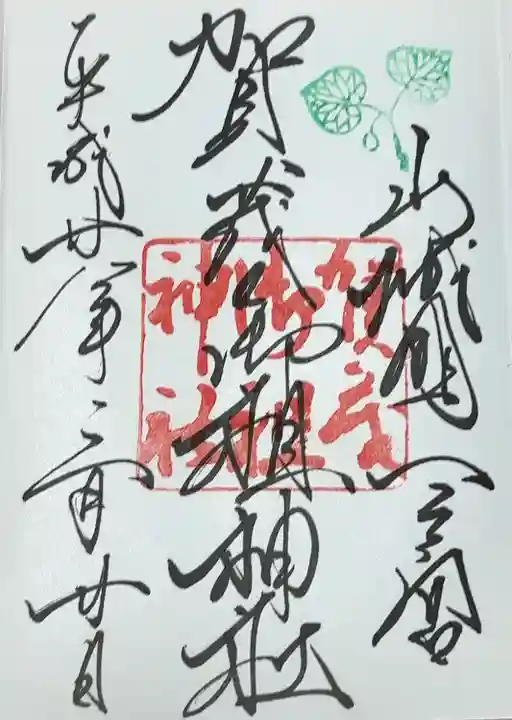 山城國一之宮
賀茂御祖神社
平成廿八年二月廿日
賀茂
御祖
神社